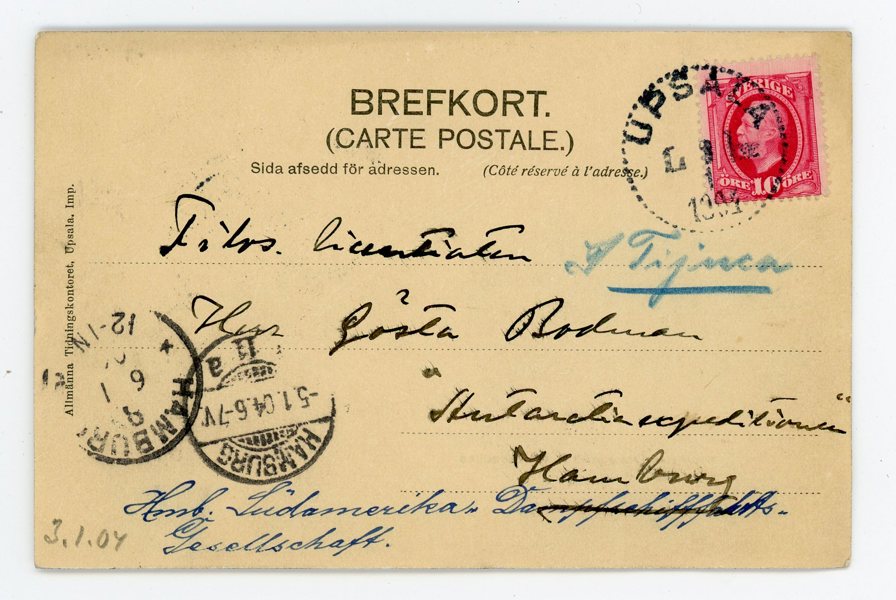 BREFKORT.
(CARTE POSTALE.)
Sida afsedd för adressen. (Côté réservé à l'adresse.)
UPSALA
1904
SVERIGE
ÖRE 10 ÖRE
Filos. licentiaten
S Tijuca
Herr Gösta Bodman
"Antarcticexpeditionen"
Hamburg
Hmb. Südamerika. Dampfschifffahrts-
Gesellschaft.
3.1.04
Allmänna Tidningskontoret, Upsala, Imp.
HAMBURG
12-1N
6
1
11 a
-5.1.04.6-7V.
HAMBURG